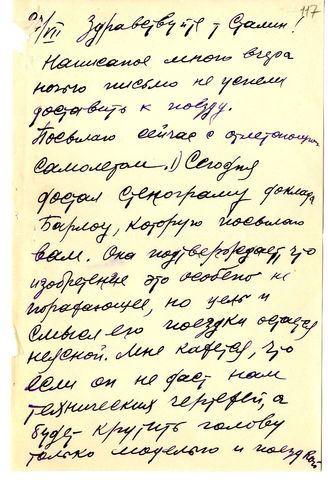 117
9/VII Здравствуйте т Сталин!
Написаное мною вчера
ночью письмо не успели
доставить к поезду.
Посылаю сейчас с отлетающим
самолетом. 1) Сегодня
достал стенограму доклада
Барлоу, которую посылаю
вам. Она подтверждает, что
изобретение это особено не
поражающее, но цель и
смысл его поездки остается
неясной. Мне кажется, что
если он не даст нам
технических чертежей, а
будет крутить голову
только моделью и поездкой